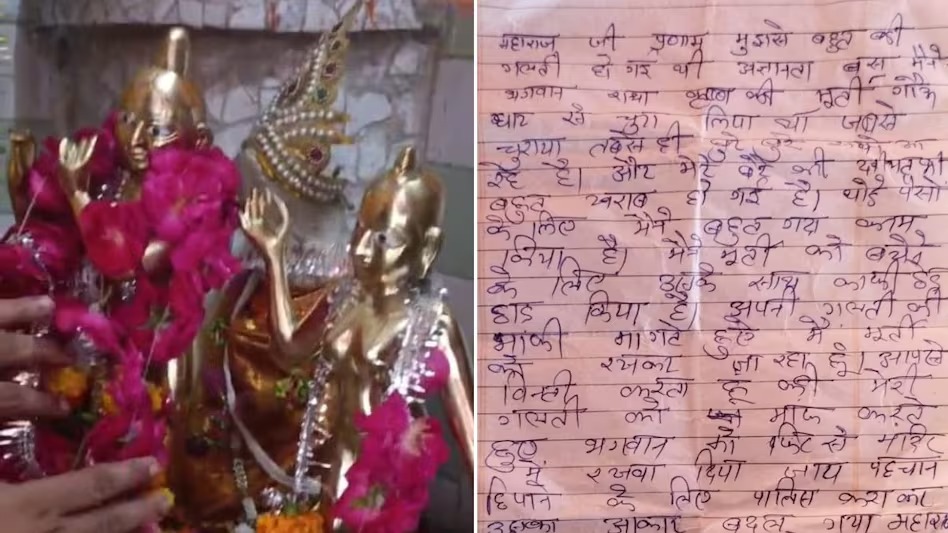 महाराज जी प्रणाम मुझसे बहुत बडी
गलती हो गई थी अज्ञानता बस मैने
भगवान राधा कृष्ण की मूर्ती गौऊ
घाट से चुरा लिया था जबसे
चुराया तबसे ही बुरे बुरे
रहे है। और मेरे बेटे की तबीयत भी
बहुत खराब हो गई है। थोडे पैसो
के लिए मैने बहुत गंदा काम
किया है। मैने मूर्ती को बेचने
के लिए उसके साथ काफी छेड
छाड किया है। अपनी गलती की
मांफी मागते हुऐ मै मूर्ती
को रखकर जा रहा हूँ। आपसे
विन्ती करता हू की मेरी
गलती को माफ करते
हुए भगवान को फिर से मंदिर
मे रखवा दिया जाय पहचान
छिपाने के लिए पालिस कराकर
उसका आकार बदल गया महाराज